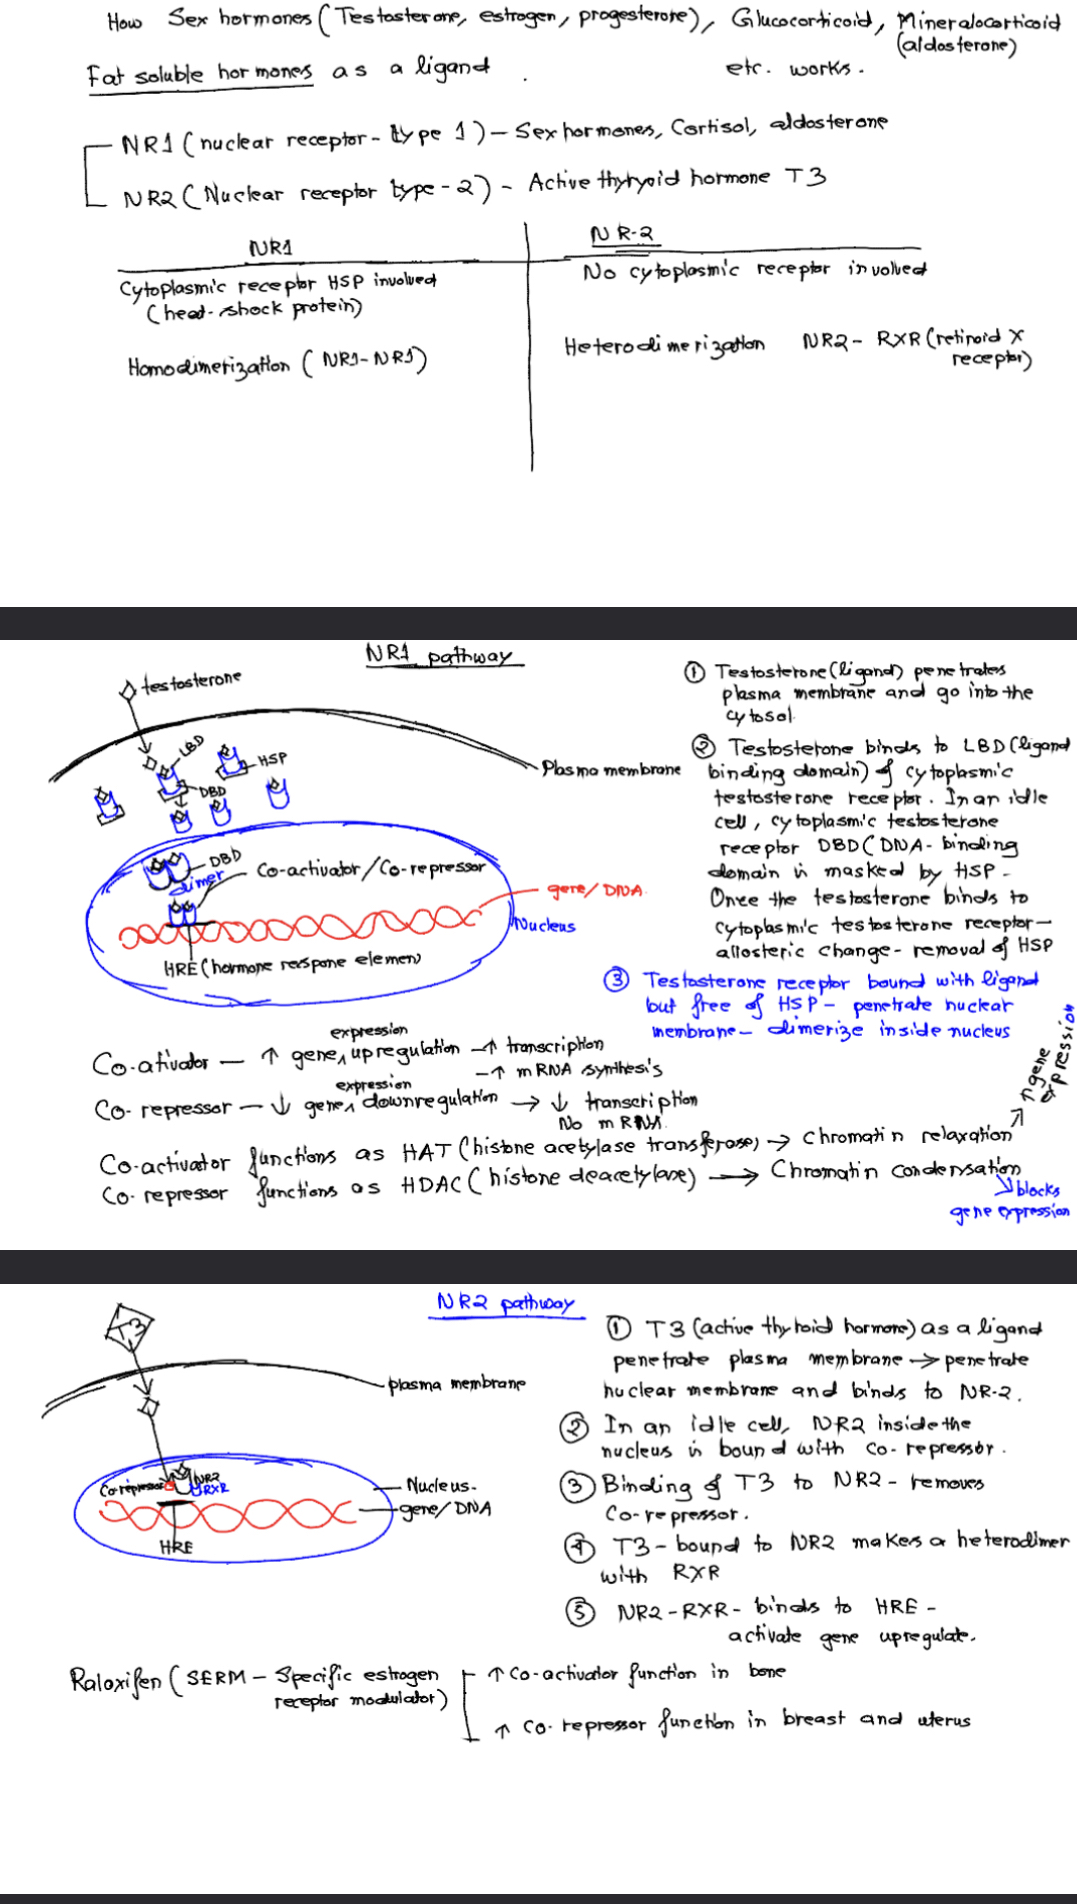 How Sex hormones (Testosterone, estrogen, progesterone), Glucocorticoid, Mineralocorticoid
(aldosterone)
Fat soluble hormones as a ligand . etc. works.
NR1 (nuclear receptor - type 1) - Sex hormones, Cortisol, aldosterone
NR2 (Nuclear receptor type-2) - Active thyryoid hormone T3
NR1
Cytoplasmic receptor HSP involved
(heat-shock protein)
Homodimerization (NR1-NR1)
NR-2
No cytoplasmic receptor involved
Heterodimerization NR2- RXR (retinoid X
receptor)
NR1 pathway
testosterone
LBD
HSP
DBD
Plasma membrane
DBD
dimer
Co-activator/Co-repressor
gene/DNA
Nucleus
HRE (hormone
① Testosterone (ligand) penetrates
plasma membrane and go into the
cytosol.
② Testosterone binds to LBD (ligand
binding domain) of cytoplasmic
testosterone receptor. In an idle
cell, cytoplasmic testosterone
receptor DBD (DNA-binding
domain is masked by HSP -
Once the testosterone binds to
cytoplasmic testosterone receptor-
allosteric change- removal of HSP
③ Testosterone receptor bound with ligand
but free of HSP - penetrate nuclear
membrane - dimerize inside nucleus
expression
Co-ativator - ↑ gene ʌ upregulation -↑ transcription
-↑ mRNA synthesis
expression
Co-repressor - ↓ gene ʌ downregulation → ↓ transcription
No mRNA.
Co-activator functions as HAT (histone acetylase transferase) → Chromatin relaxation ↗ ↑gene expression
Co-repressor functions as HDAC (histone deacetylase) → Chromatin condensation
↘ blocks
gene expression
NR2 pathway
T3
plasma membrane
Co-repressor
NR2
RXR
Nucleus.
gene/DNA
HRE
① T3 (active thyroid hormone) as a ligand
penetrate plasma membrane → penetrate
nuclear membrane and binds to NR-2.
② In an idle cell, NR2 inside the
nucleus is bound with co-repressor.
③ Binding of T3 to NR2 - removes
Co-repressor.
④ T3 - bound to NR2 makes a heterodimer
with RXR
⑤ NR2-RXR- binds to HRE -
activate gene upregulate.
Raloxifen (SERM - Specific estrogen
receptor modulator)
↑ Co-activator function in bone
↑ Co-repressor function in breast and uterus